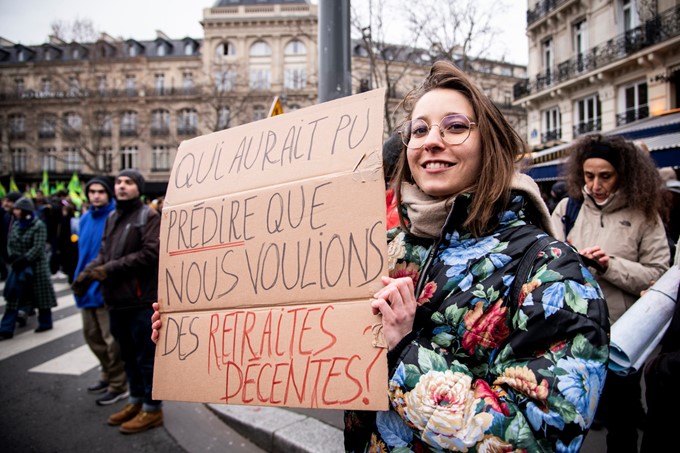 QUI AURAIT PU
PRÉDIRE QUE
NOUS VOULIONS
DES RETRAITES
DÉCENTES!